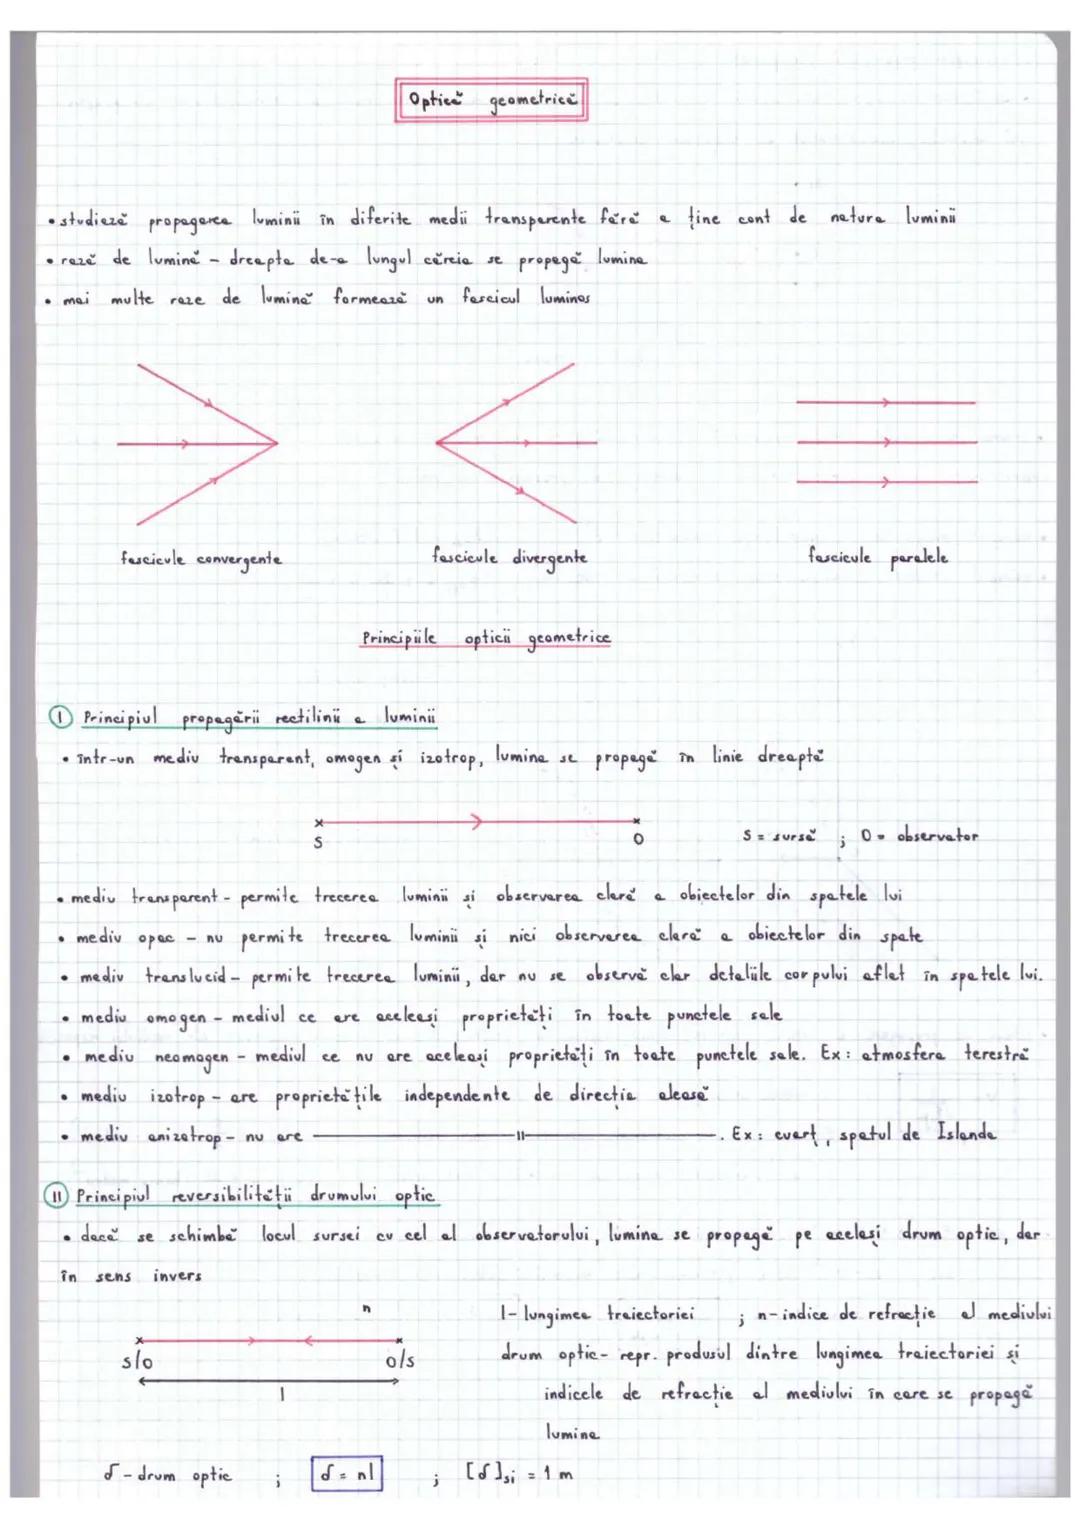 Optică geometrică
• studiază propagarea luminii în diferite medii transparente fără a ține cont de natura luminii
• rază de lumină - dreapta de-a lungul căreia se propagă lumina
• mai multe raze de lumină formează un fascicul luminos
fascicule convergente fascicule divergente fascicule paralele
Principiile opticii geometrice
I Principiul propagării rectilinii a luminii
• într-un mediu transparent, omogen și izotrop, lumina se propagă în linie dreaptă
S O S = sursă ; O = observator
• mediu transparent - permite trecerea luminii și observarea clară a obiectelor din spatele lui
• mediu opac - nu permite trecerea luminii și nici observarea clară a obiectelor din spate
• mediu translucid - permite trecerea luminii, dar nu se observă clar detaliile corpului aflat în spatele lui.
• mediu omogen - mediul ce are aceleași proprietăți în toate punctele sale
• mediu neomogen - mediul ce nu are aceleași proprietăți în toate punctele sale. Ex: atmosfera terestră
• mediu izotrop - are proprietățile independente de direcția aleasă
• mediu anizotrop - nu are —"—. Ex: cuarț, spatul de Islanda
II Principiul reversibilității drumului optic
• dacă se schimbă locul sursei cu cel al observatorului, lumina se propagă pe același drum optic, dar
în sens invers
n
l - lungimea traiectoriei ; n - indice de refracție al mediului
S/O O/S
drum optic - repr. produsul dintre lungimea traiectoriei și
l
indicele de refracție al mediului în care se propagă
lumina
δ - drum optic ; δ = nl ; [δ]si = 1 m